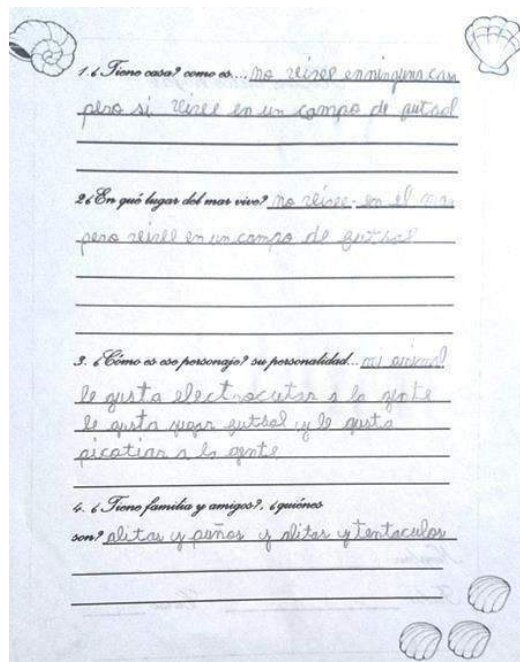 1. ¿Tiene casa? como es.... no vive en ninguna cas
pero si vive en un campo de futbol
2 ¿En qué lugar del mar vive? no vive en el mar
pero vive en un campo de futbol
3. ¿Cómo es ese personaje? su personalidad... mi animal
le gusta electrocutar a la gente
le gusta jugar futbol y le gusta
picotiar a la gente
4. ¿Tiene familia y amigos?, ¿quiénes
son? alitas y y alitas y tentaculos